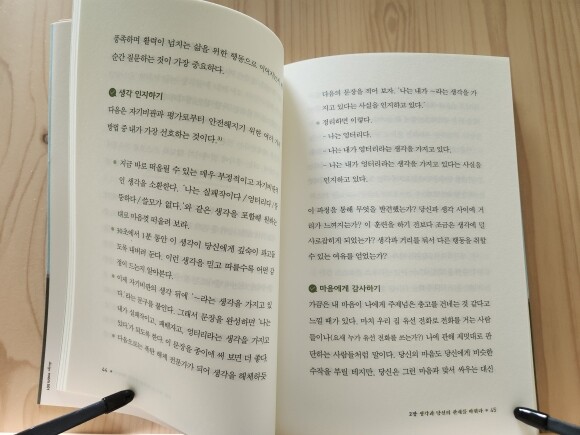 족하며 활력이 넘치는 삶을 위한 행동으로
순간 질문하는 것이 가장 중요하다.
생각 인지하기
다음은 자기비판과 평가로부터 안전해지기 위한 여러
방법 중 내가 가장 선호하는 것이다.
지금 바로 떠올릴 수 있는 매우 부정적이고
인 생각을 소환한다. '나는 실패작이다 / 엉터리다 /
하다 / 쓸모가 없다.'와 같은 생각을 포함해 원하는
대로 마음껏 떠올려 보라.
30초에서 1분 동안 이 생각이 당신에게 깊숙이 파고들
도록 내버려 둔다. 이런 생각을 믿고 따를수록 어떤 감
정이 드는지 알아본다.
이제 자기비판의 생각 뒤에 '~라는 생각을 가지고 있
다.'라는 문구를 붙인다. 그래서 문장을 완성하면 '나는
내가 실패작이고, 패배자고, 엉터리라는 생각을 가지고
있다'가 되도록 한다. 이 문장을 종이에 써 보면 더 좋다.
다음으로는 폭탄 해체 전문가가 되어 생각을 해체하듯
44
다음의 문장을 적어 보자. '나는 내가 ~라는 생각을 가
지고 있다는 사실을 인지하고 있다.'
정리하면 이렇다.
- 나는 엉터리다.
- 나는 내가 엉터리라는 생각을 가지고 있다.
- 나는 내가 엉터리라는 생각을 가지고 있다는 사실을
인지하고 있다.
이 과정을 통해 무엇을 발견했는가? 당신과 생각 사이에 거
리가 느껴지는가? 이 훈련을 하기 전보다 조금은 생각에 덜
사로잡히게 되었는가? 생각과 거리를 둬서 다른 행동을 취할
수 있는 여유를 얻었는가?
마음에게 감사하기
가끔은 내 마음이 나에게 주제넘은 충고를 건네는 것 같다고
느낄 때가 있다. 마치 우리 집 유선 전화로 전화를 거는 사람
들이나(요새 누가 유선 전화를 쓰는가?) 나에 관해 제멋대로 판
단하는 사람들처럼 말이다. 당신의 마음도 당신에게 비슷한
수작을 부릴 테지만, 당신은 그런 마음과 맞서 싸우는 대신
2장 생각과 당신의 관계를 바꿔라 45